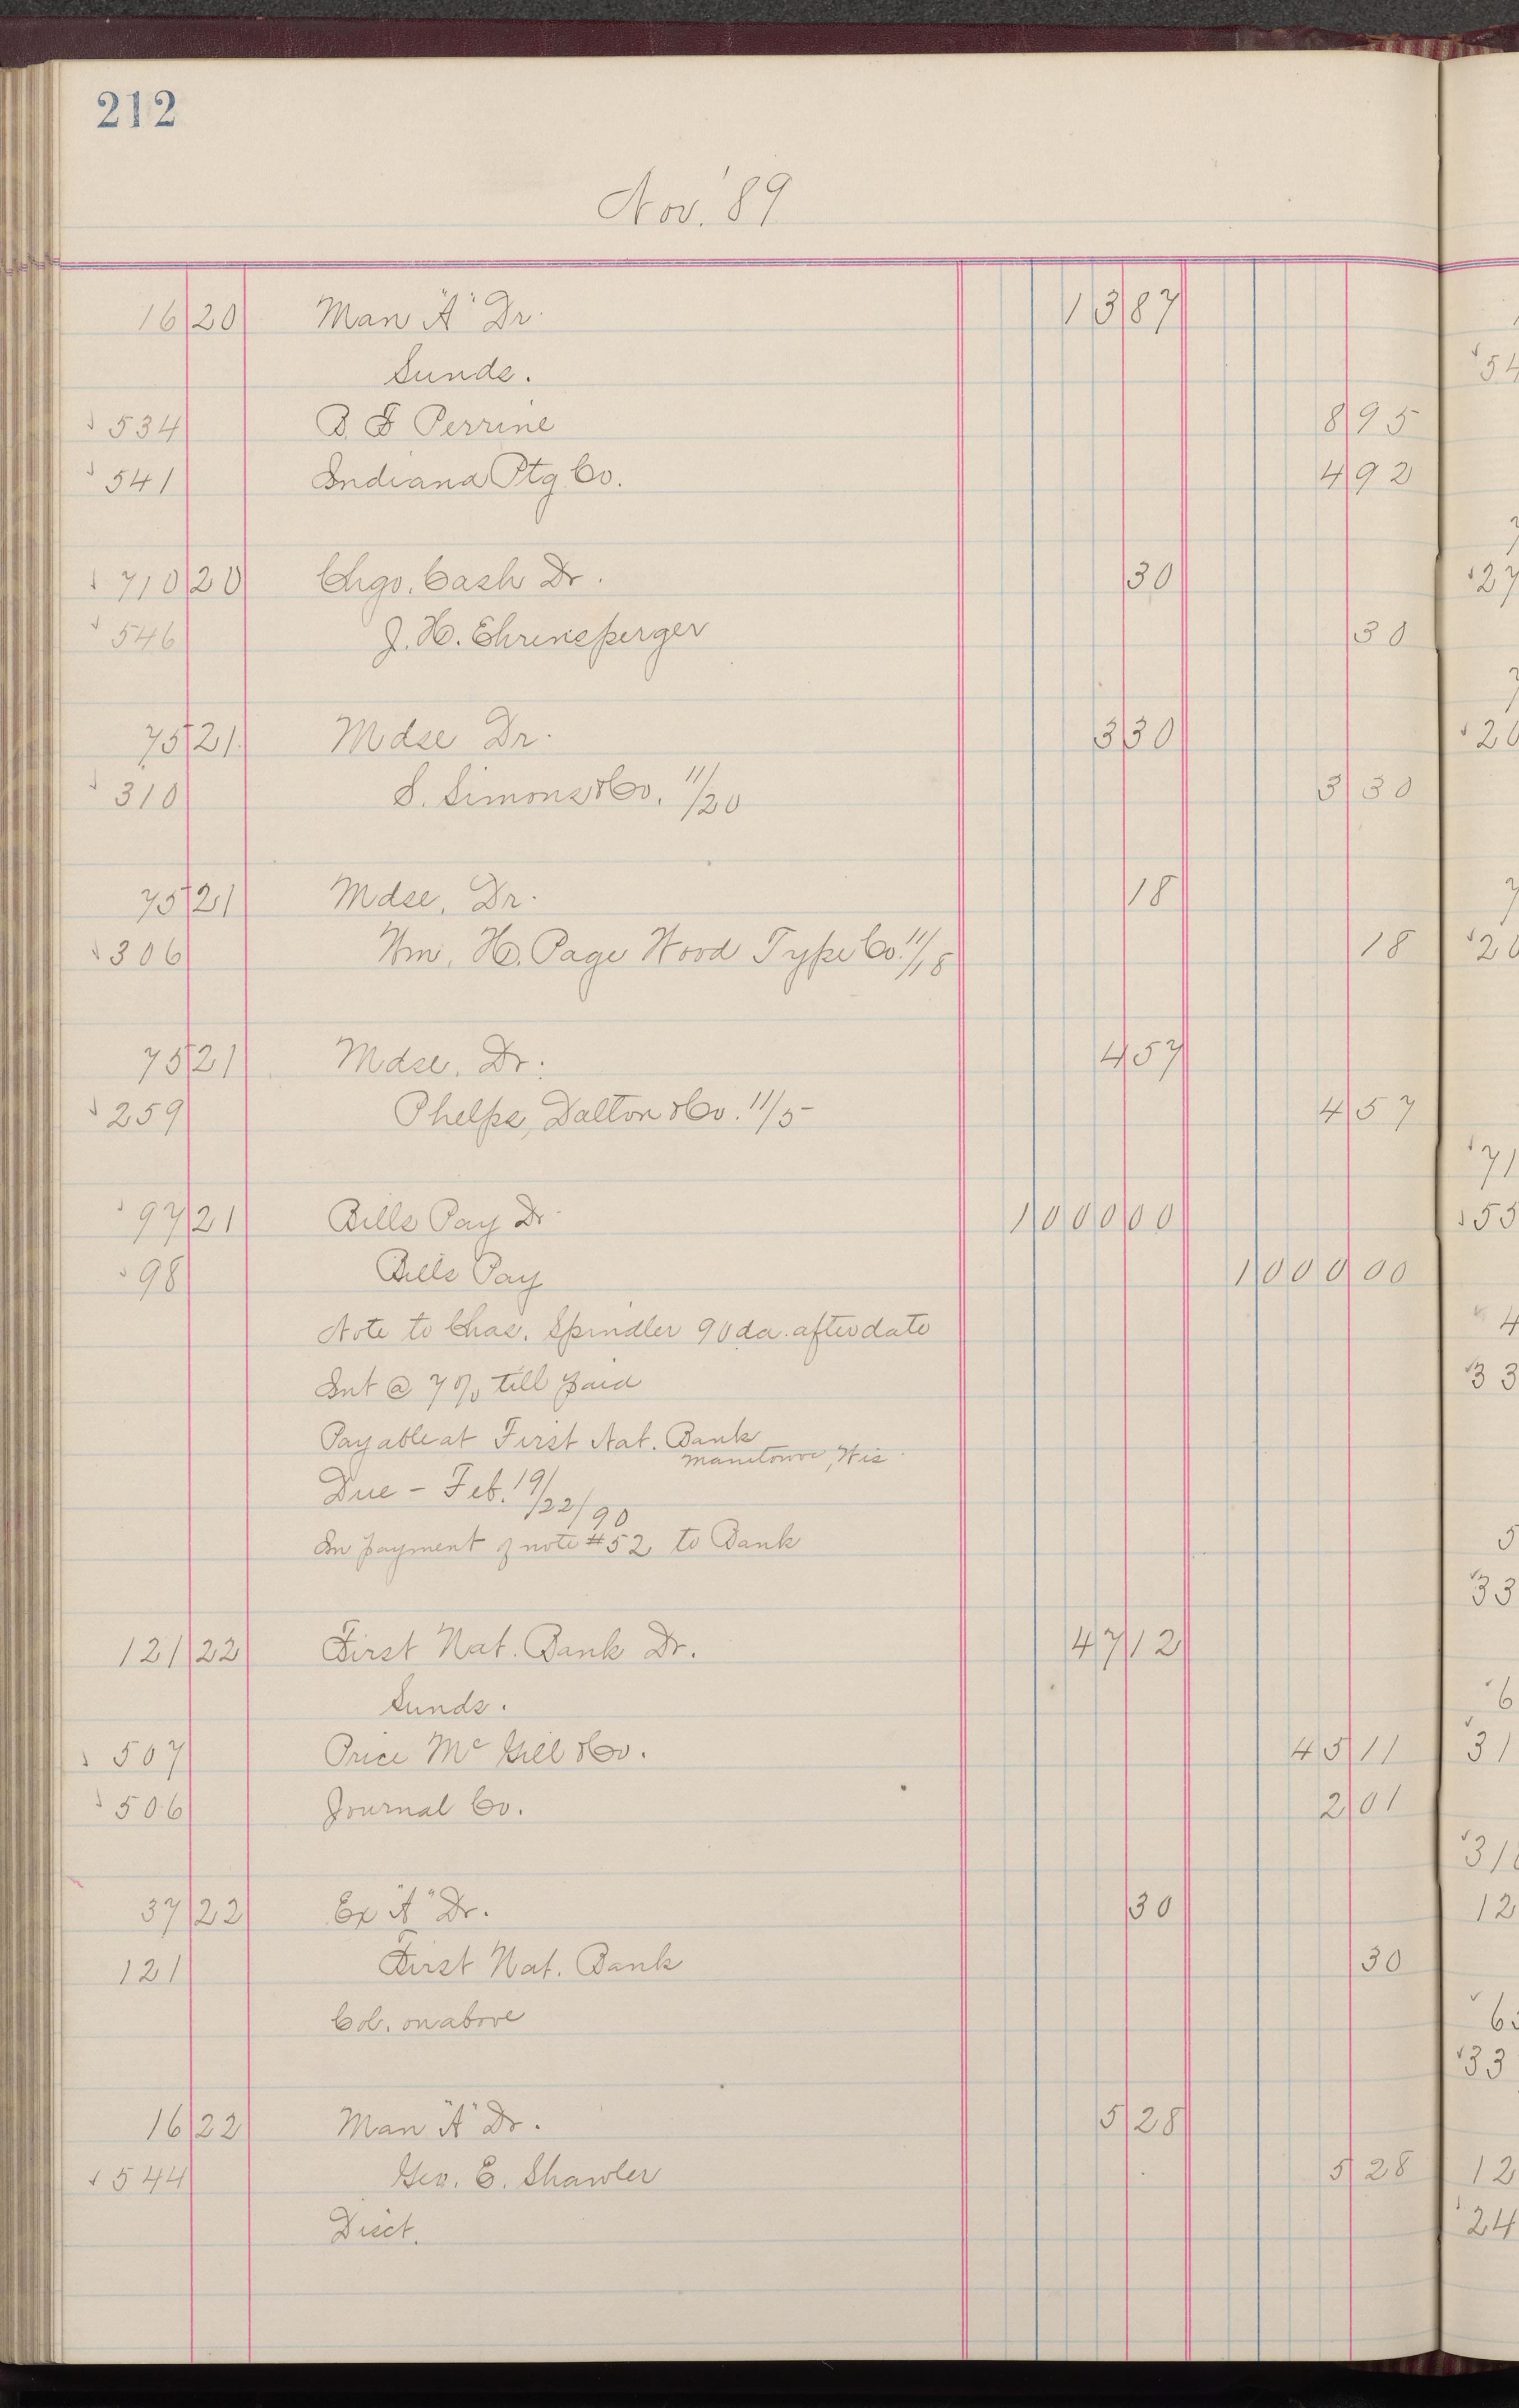 212
Nov. '89
16 20 Man "A" Dr. 13 87
Sunds.
534 B F Perrine 8 95
541 Indiana Ptg Co. 4 92
710 20 Chgo. Cash Dr. 30
546 J. H. Ehrensperger 30
75 21 Mdse Dr. 3 30
310 S. Simons & Co. 11/20 3 30
75 21 Mdse. Dr. 18
306 Wm. H. Page Wood Type Co. 11/18 18
75 21 Mdse. Dr. 4 57
259 Phelps, Dalton & Co. 11/5 4 57
97 21 Bills Pay Dr 1000 00
98 Bills Pay 1000 00
Note to Chas. Spindler 90 da. after date
Int @ 7% till paid
Payable at First Nat. Bank
Wis
Due - Feb. 19/22/90
In payment of note #52 to Bank
121 22 First Nat. Bank Dr. 47 12
Sunds.
507 Price McGill & Co. 45 11
506 Journal Co. 2 01
37 22 Ex "A" Dr. 30
121 First Nat. Bank 30
Col. on above
16 22 Man "A" Dr. 5 28
544 Geo. E. Shawler 5 28
Disct.